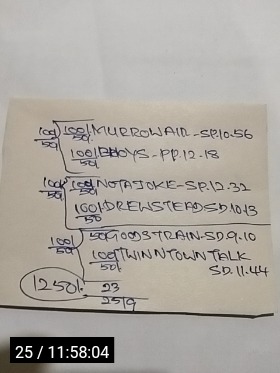 100/50 100/50 MURROWAIR-SP.10.56
100/50 BHOYS-PP.12-18
100/50 100/50 NOTAJOKE-SP.12.32
100/50 DREWSTEADSD1013
100/50 50 GOODSTRAIN-SD.9.10
100/50 TWINNTOWNTALK
SD.11.44
1250/ 23
2519
25 / 11:58:04